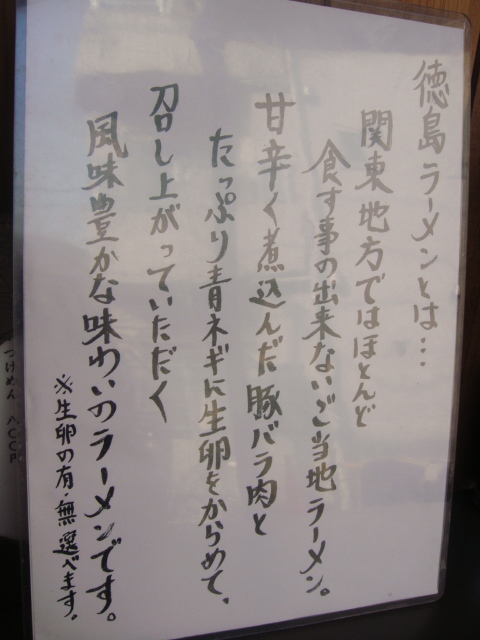 徳島ラーメンとは…
関東地方ではほとんど
食す事の出来ないご当地ラーメン。
甘辛く煮込んだ豚バラ肉と
たっぷり青ネギに生卵をからめて、
召し上がっていただく
風味豊かな味わいのラーメンです。
※生卵の有・無選べます。
つけめん